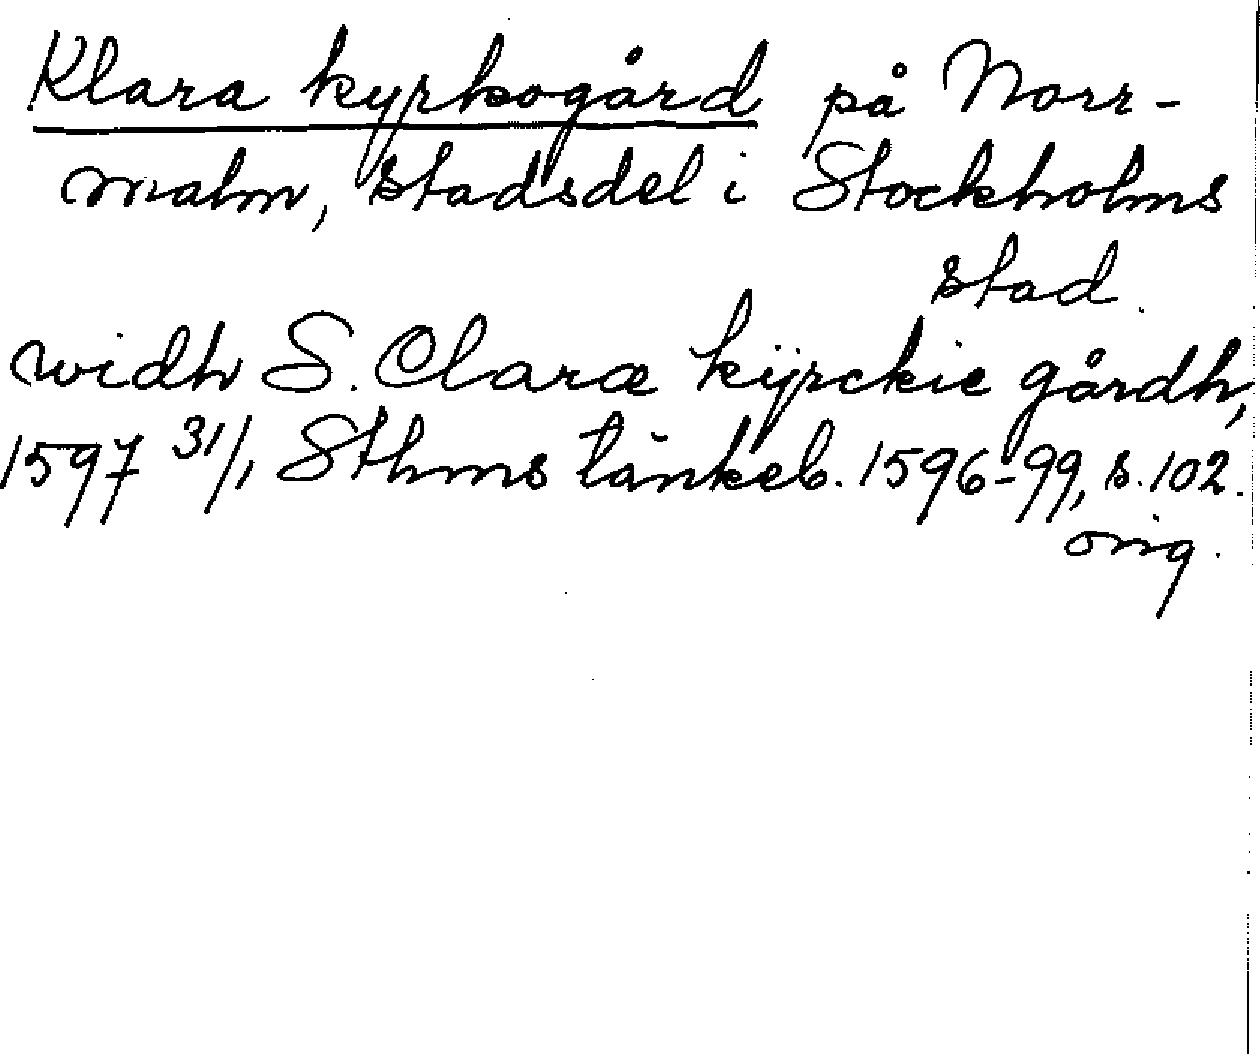 Klara kyrkogård på Norr-
malm, stadsdel i Stockholms
stad.
widh S. Claræ kijrckie gårdh,
1597 31/1 Sthms tänkeb. 1596-99, s. 102.
orig.